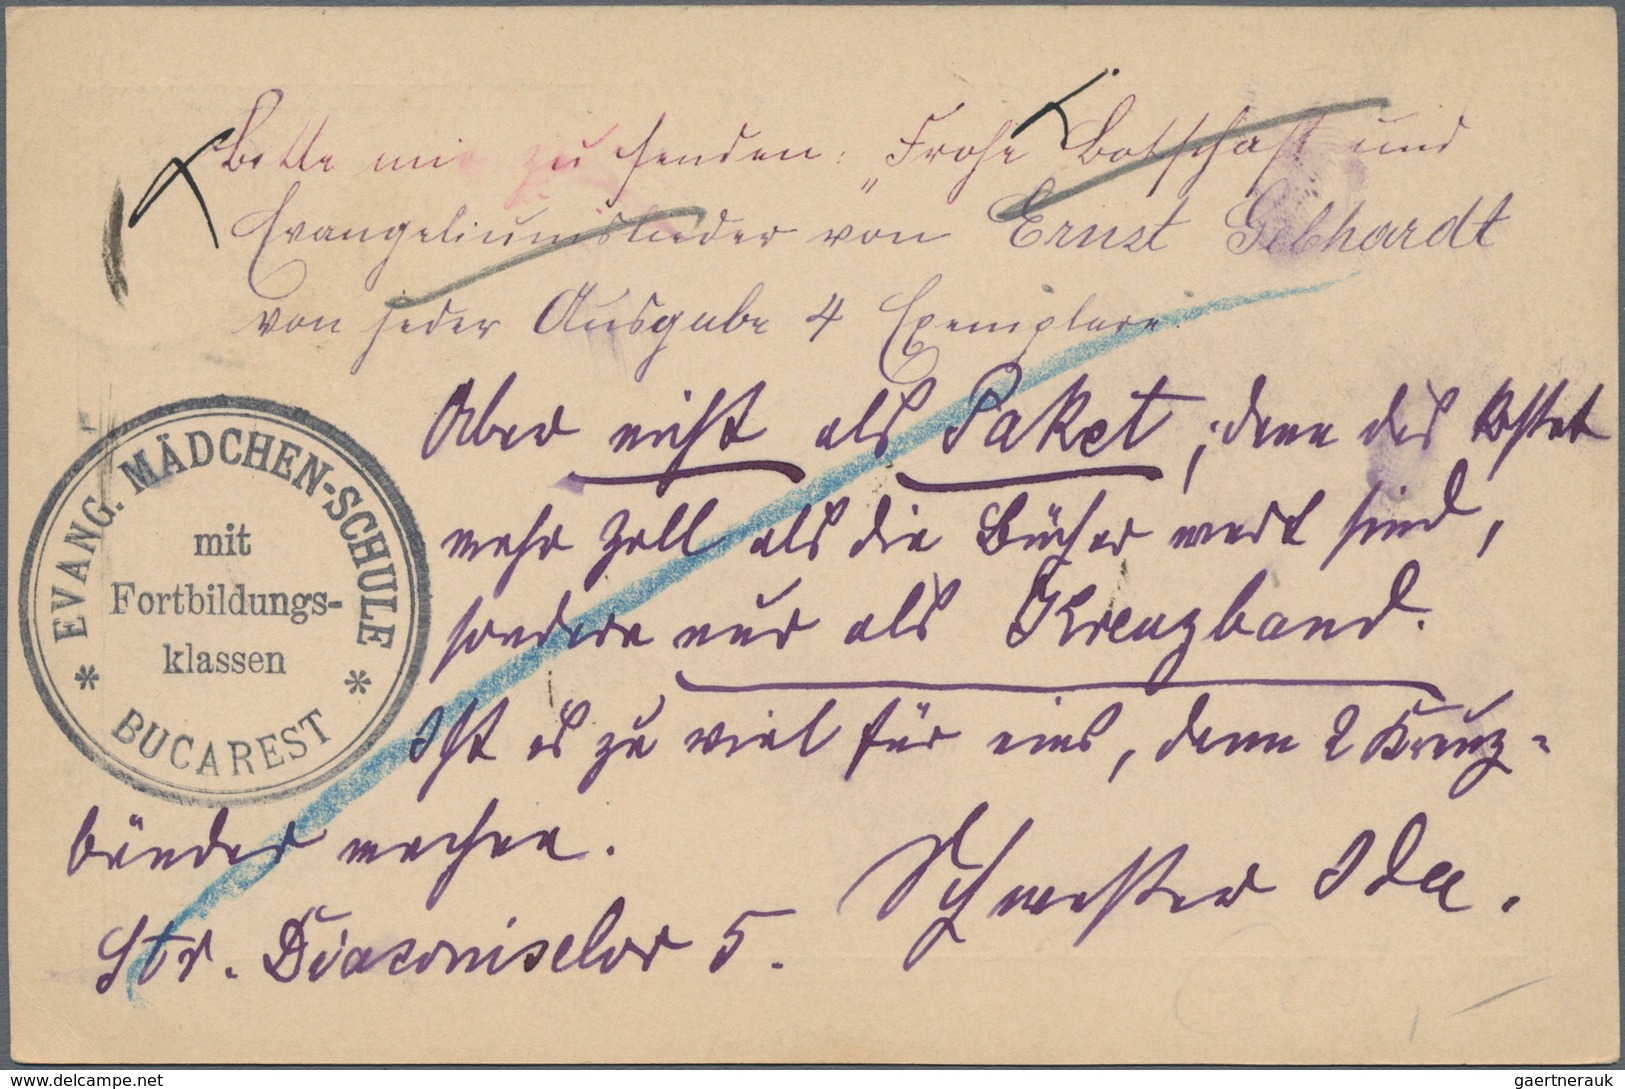 Bitte mir zu senden: „Frohe Botschaft und
Evangeliumslieder von Ernst Gebhardt
von jeder Ausgabe 4 Exemplare.
Aber nicht als Paket, denn das kostet
mehr Zoll als die Bücher wert sind,
sondern nur als Kreuzband.
Ist es zu viel für eins, dann 2 Kreuz-
bänder machen.
Schwester Ida.
Str. Diaconiselor 5.
EVANG. MÄDCHEN-SCHULE
mit
Fortbildungs-
klassen
* BUCAREST *
© delcampe.net
gaertnerauk